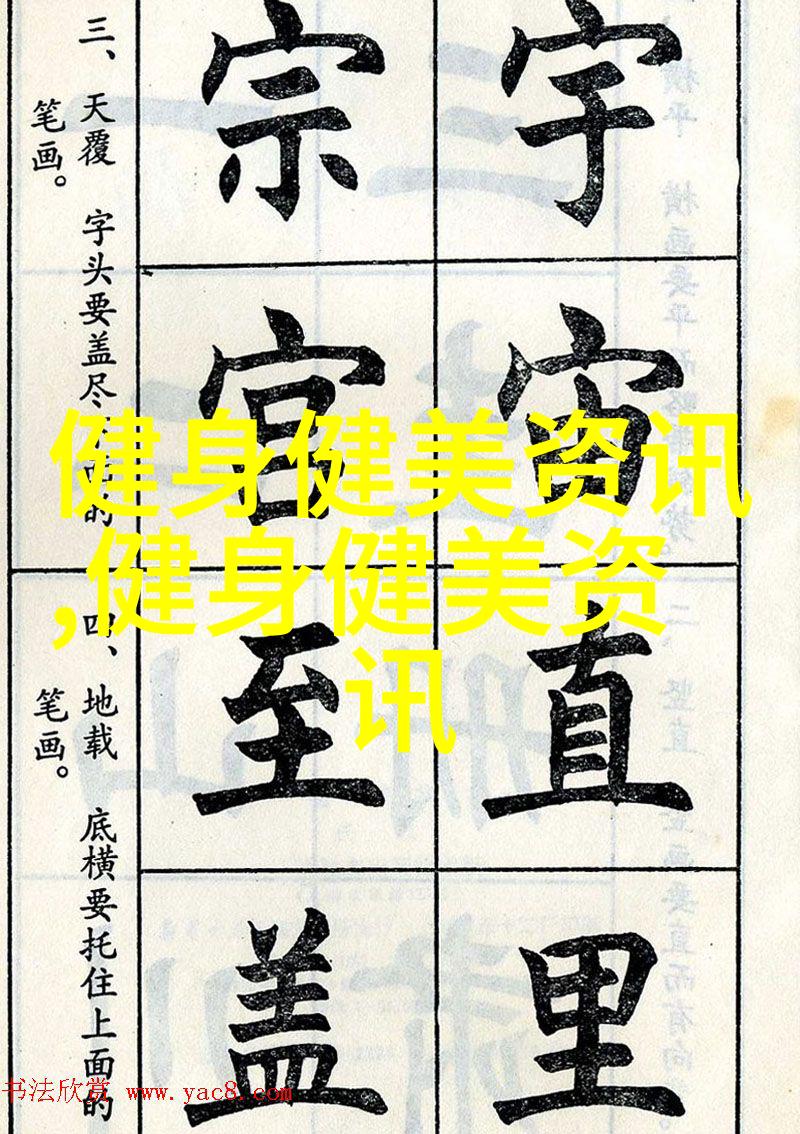 宇宙直里
宗宫至盖
三、天覆 字头要盖尽下面的
笔画。
四、地载 底横要托住上面的
笔画。
健身健美资讯
,健身健美资
讯
书法欣赏 www.yac8.com